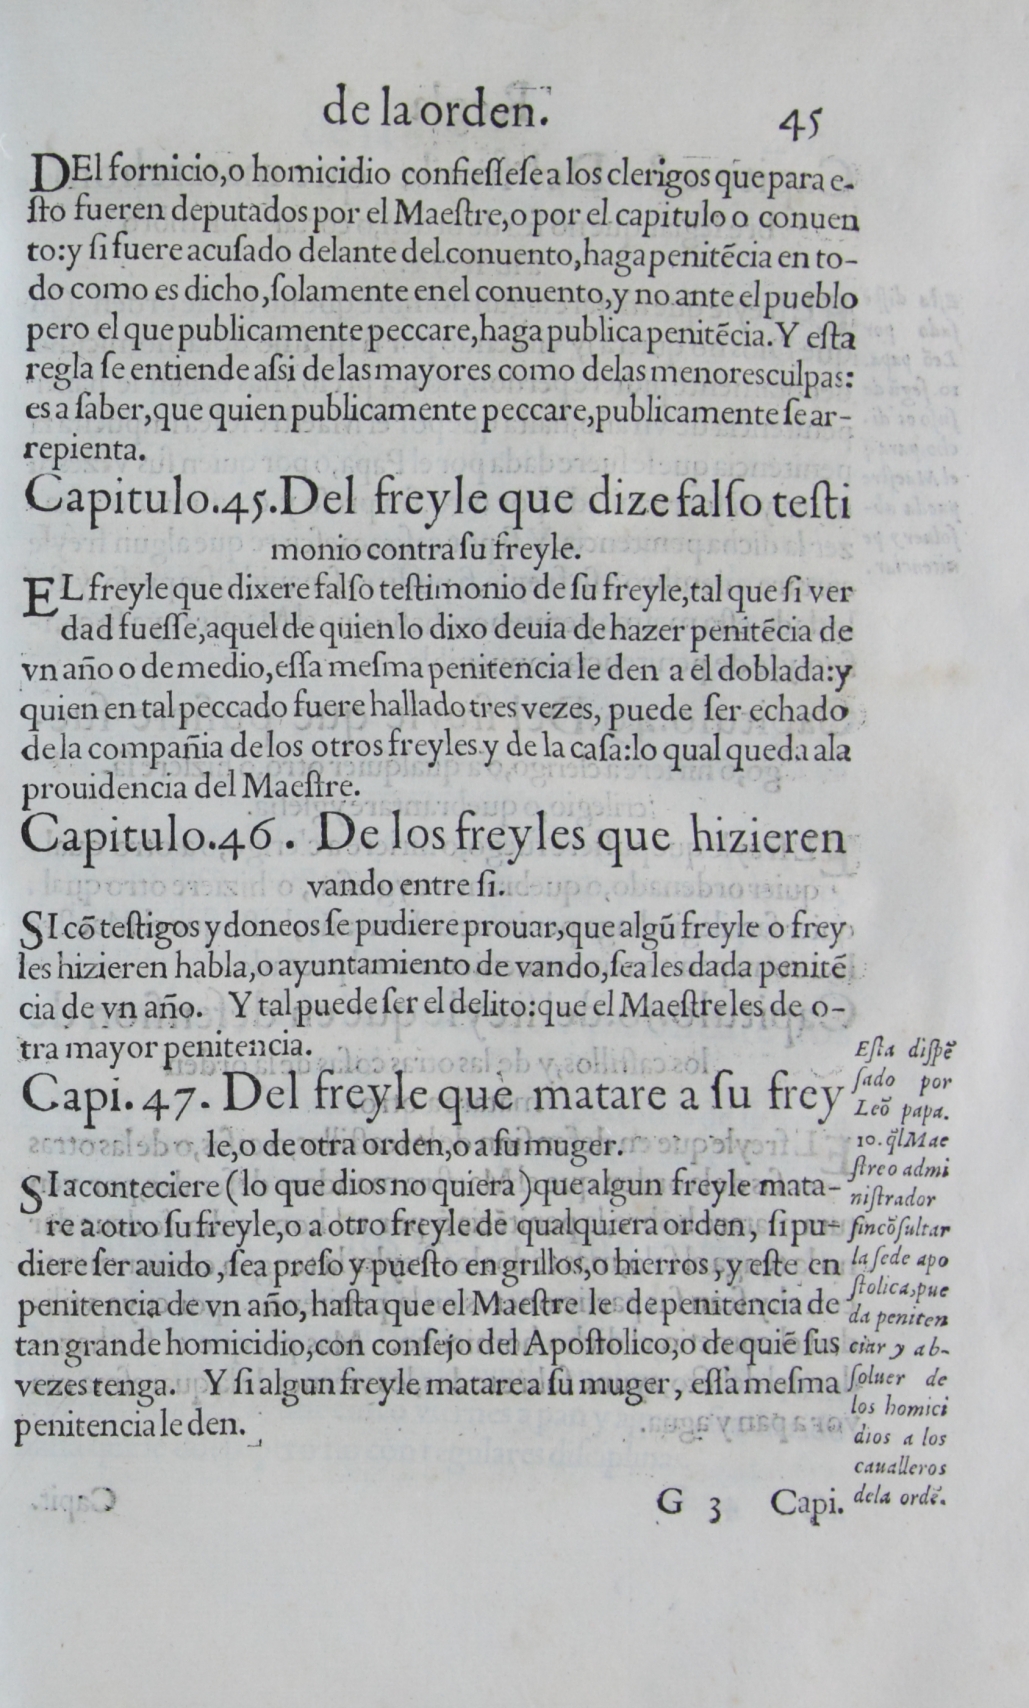 de la orden.
45
DEl fornicio,o homicidio confieſſeſe a los clerigos que para e-
ſto fueren deputados por el Maeſtre,o por el capitulo o conuen
to:y ſi fuere acuſado delante del conuento,haga penitẽcia en to-
do como es dicho,ſolamente enel conuento,y no ante el pueblo
pero el que publicamente peccare,haga publica penitẽcia. Y eſta
regla ſe entiende aſsi de las mayores como delas menores culpas:
es a ſaber,que quien publicamente peccare,publicamente ſe ar-
repienta.
Capitulo.45.Del freyle que dize falſo teſti
monio contra ſu freyle.
EL freyle que dixere falſo teſtimonio de ſu freyle,tal que ſi ver
dad fueſſe,aquel de quien lo dixo deuia de hazer penitẽcia de
vn año o de medio,eſſa meſma penitencia le den a el doblada:y
quien en tal peccado fuere hallado tres vezes, puede ſer echado
de la compañia de los otros freyles y de la caſa:lo qual queda ala
prouidencia del Maeſtre.
Capitulo.46. De los freyles que hizieren
vando entre ſi.
SI cõ teſtigos ydoneos ſe pudiere prouar,que algũ freyle o frey
les hizieren habla,o ayuntamiento de vando,ſea les dada penitẽ
cia de vn año. Y tal puede ſer el delito:que el Maeſtre les de o-
tra mayor penitencia.
Capi.47. Del freyle que matare a ſu frey
le,o de otra orden,o a ſu muger.
SI aconteciere (lo que dios no quiera) que algun freyle mata-
re a otro ſu freyle,o a otro freyle de qualquiera orden, ſi pu-
diere ſer auido,ſea preſo y pueſto en grillos,o hierros,y eſte en
penitencia de vn año,haſta que el Maeſtre le de penitencia de
tan grande homicidio,con conſejo del Apoſtolico,o de quiẽ ſus
vezes tenga. Y ſi algun freyle matare a ſu muger, eſſa meſma
penitencia le den.
Eſta diſpẽ
ſado por
Leõ papa.
10. q̃l Mae
ſtre o admi
niſtrador
ſin cõſultar
la ſede apo
ſtolica,pue
da peniten
ciar y ab-
ſoluer de
los homici
dios a los
caualleros
dela ordẽ.
G 3 Capi.